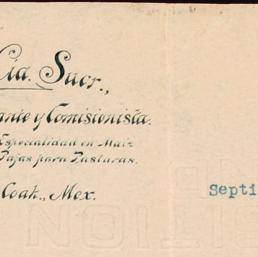 Cia. Sucr.,
ante y Comisionista.
Especialidad en Maiz
Pajas para Pasturas.
Coah., Mex.
Septi